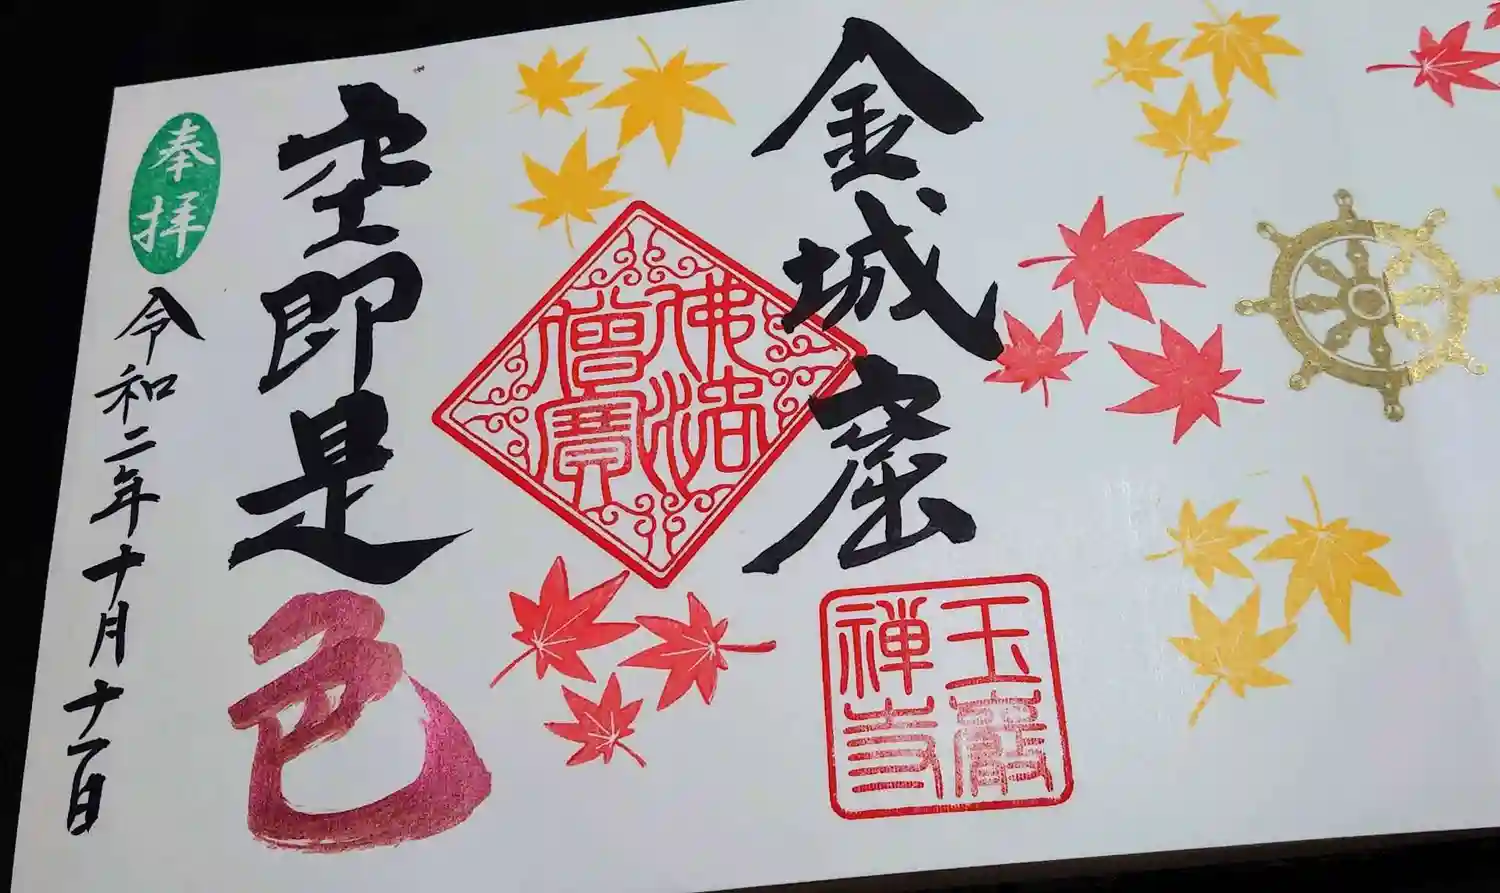 金城窟
玉巖
禅寺
佛法
僧寶
空即是色
奉拝
令和二年十月十一日